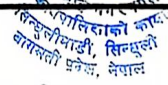 पालिकाको का
सिन्धुलीमाडी, सिन्धुली
बागमती प्रदेश, नेपाल